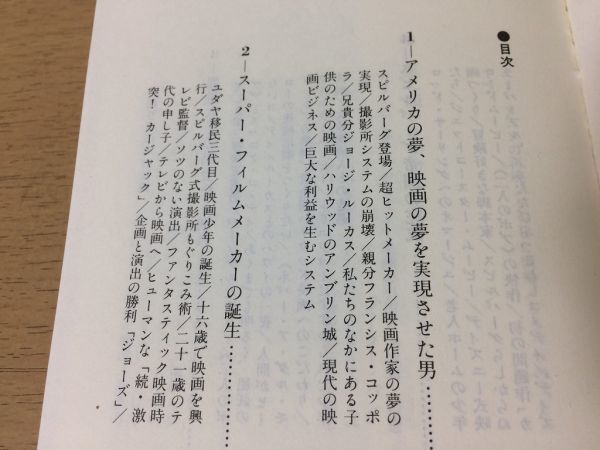 ●目次
1―アメリカの夢、映画の夢を実現させた男…………
スピルバーグ登場/超ヒットメーカー/映画作家の夢の
実現/撮影所システムの崩壊/親分フランシス・コッポ
ラ/兄貴分ジョージ・ルーカス/私たちのなかにある子
供のための映画/ハリウッドのアンブリン城/現代の映
画ビジネス/巨大な利益を生むシステム
2―スーパー・フィルムメーカーの誕生…………
ユダヤ移民三代目/映画少年の誕生/十六歳で映画を興
行/スピルバーグ式撮影所もぐりこみ術/二十一歳のテ
レビ監督/ソツのない演出/ファンタスティック映画時
代の申し子/テレビから映画へ/ヒューマンな「続・激
突! カージャック」/企画と演出の勝利「ジョーズ」/